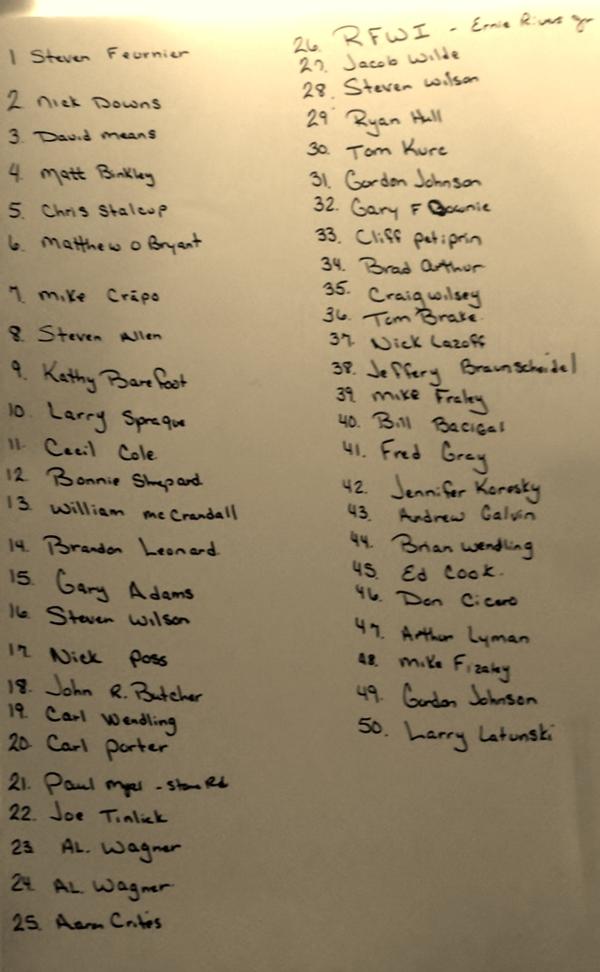 1 Steven Feurnier
2 Nick Downs
3. David Means
4. Matt Binkley
5. Chris Stalcup
6. Matthew O Bryant
7. Mike Crapo
8. Steven Allen
9. Kathy Barefoot
10. Larry Sprague
11. Cecil Cole
12 Bonnie Shepard
13. William McCrandall
14. Brandon Leonard
15. Gary Adams
16. Steven Wilson
17. Nick Poss
18. John R. Butcher
19. Carl Wendling
20. Carl Porter
21. Paul - Stone Rd
22. Joe Tinlick
23 AL. Wagner
24. AL. Wagner
25. Aaron Crites
26. RFWI - Ernie Rivers Jr
27. Jacob Wilde
28. Steven Wilson
29 Ryan Hull
30. Tom Kurc
31. Gordon Johnson
32. Gary F Downie
33. Cliff Petiprin
34. Brad Arthur
35. Craig Wilsey
36. Tom Brake
37. Nick Lazoff
38. Jeffery Braunscheidel
39. Mike Fraley
40. Bill Bacigal
41. Fred Gray
42. Jennifer Koresky
43. Andrew Galvin
44. Brian Wendling
45. Ed Cook.
46. Don Cicero
47. Arthur Lyman
48. Mike
49. Gordon Johnson
50. Larry Latunski